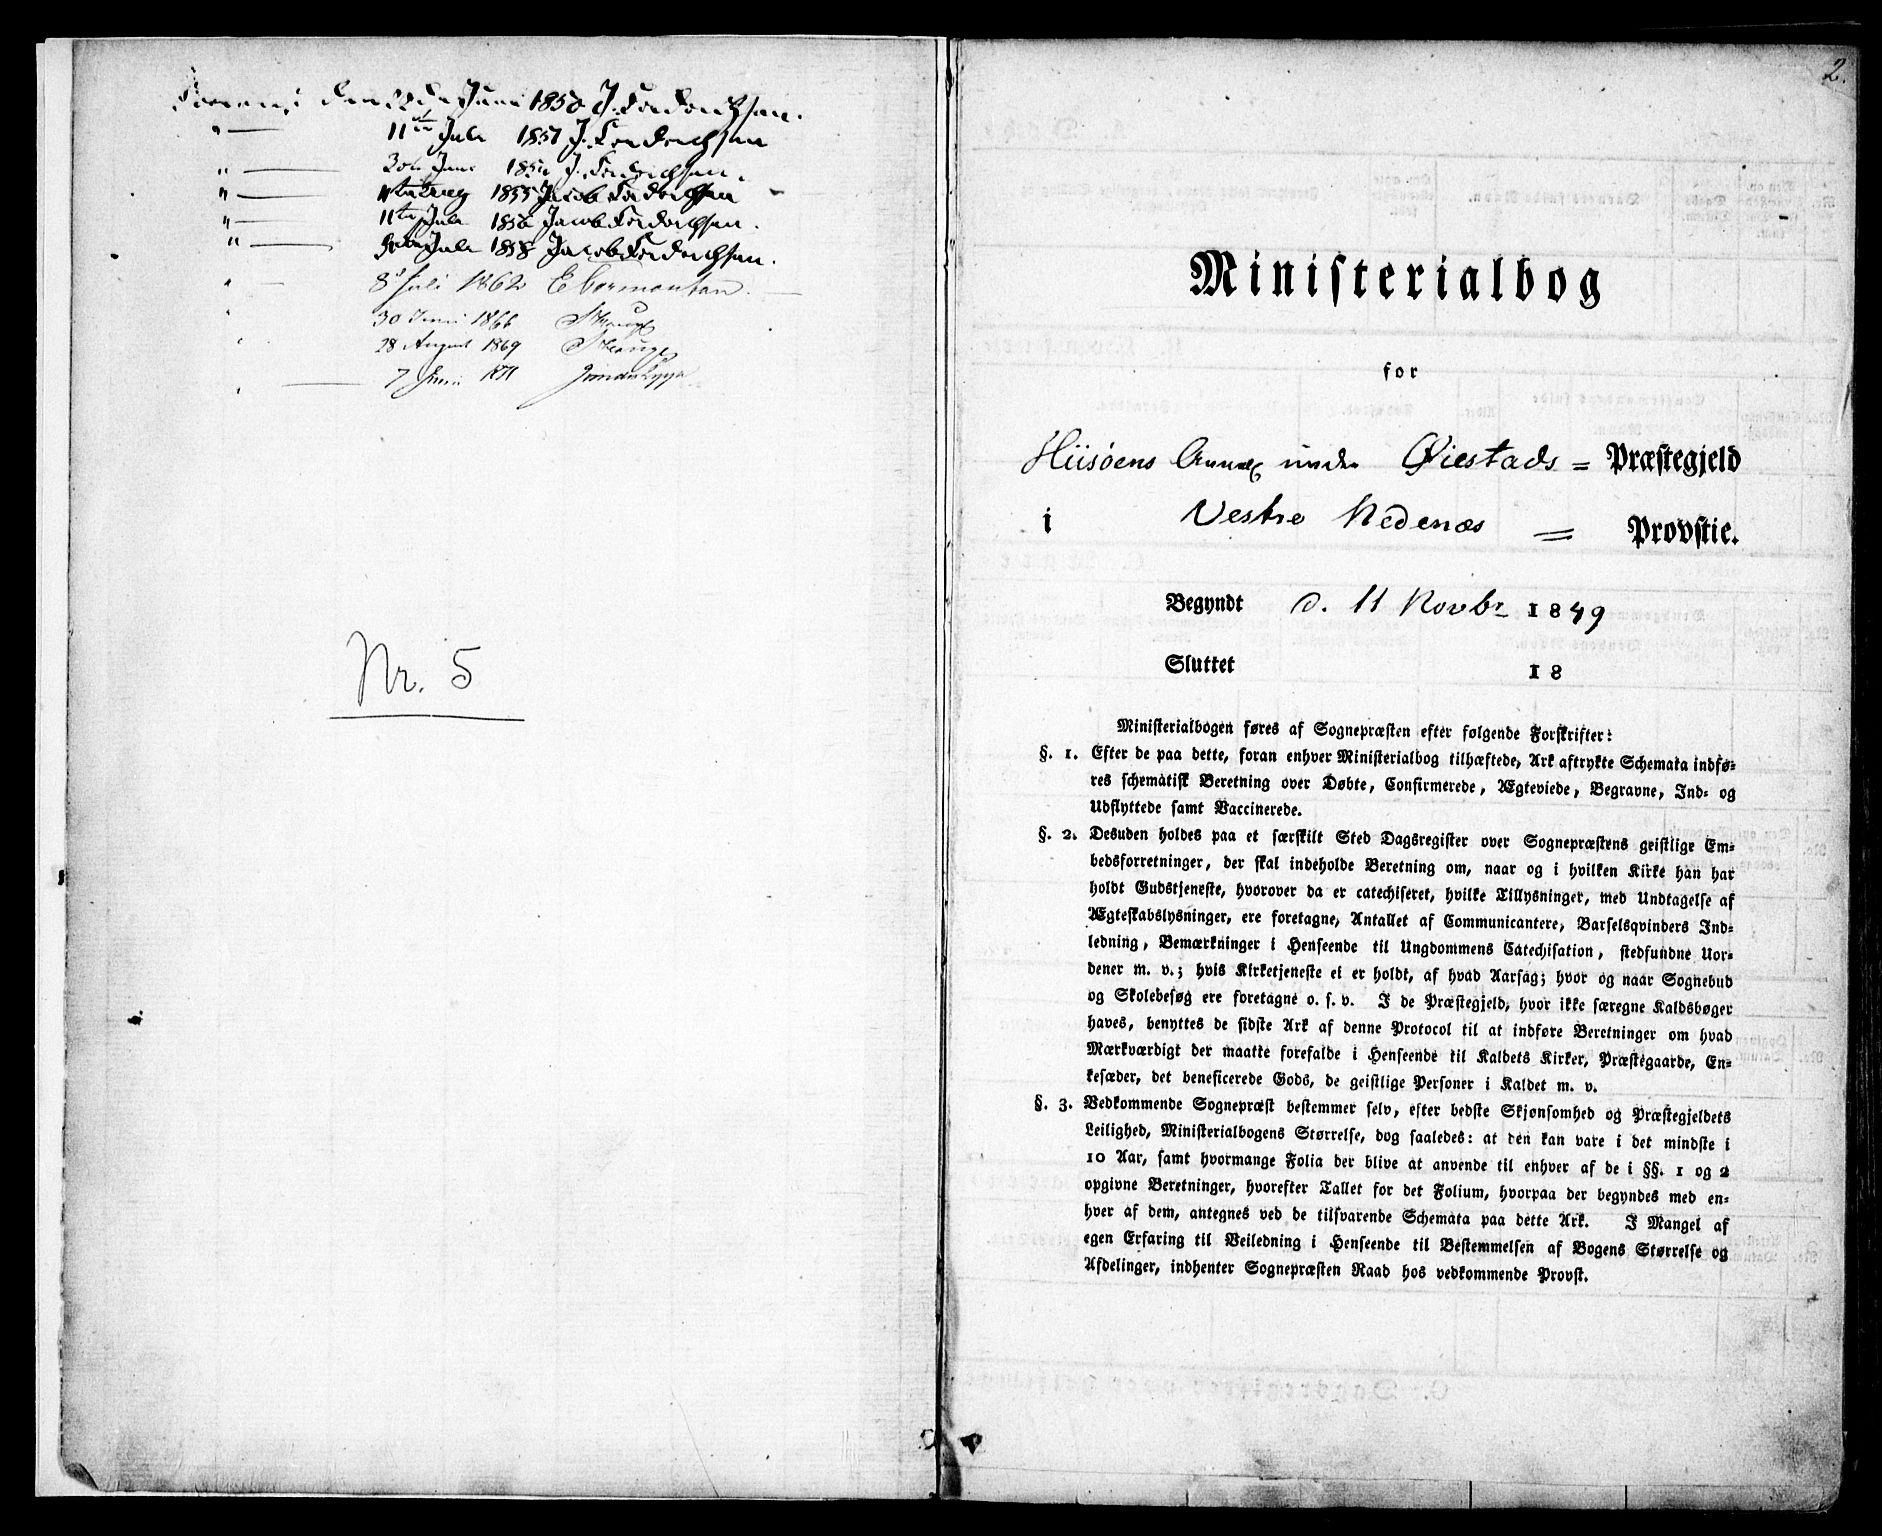 Juni 1850 J. Frederichsen.
" — 11te Juli 1851 J. Frederichsen
" — Juni J. Frederichsen.
" — 1855 Jacob Frederichsen
" — 11te Juli 1856 Jacob Frederichsen.
" — Juli 1858 Jacob Frederichsen.
" — 8de Juli 1862
" 30 Juni 1866 Hauge
" 28 August 1869 Hauge
" — 7 Juni 1871
Nr. 5
2.
Ministerialbog
for
Hiisöens Annex under Øiestads = Præstegjeld
i Vestre Nedenæs = Provstie.
Begyndt d. 11 Novbr 1849
Sluttet 18
Ministerialbogen føres af Sognepræsten efter følgende Forskrifter:
§. 1. Efter de paa dette, foran enhver Ministerialbog tilhæftede, Ark aftrykte Schemata indfø-
res schematisk Beretning over Døbte, Confirmerede, Ægteviede, Begravne, Ind- og
Udflyttede samt Vaccinerede.
§. 2. Desuden holdes paa et særskilt Sted Dagsregister over Sognepræstens geistlige Em-
bedsforretninger, der skal indeholde Beretning om, naar og i hvilken Kirke han har
holdt Gudstjeneste, hvorover da er catechiseret, hvilke Tillysninger, med Undtagelse af
Ægteskabslysninger, ere foretagne, Antallet af Communicantere, Barselsqvinders Ind-
ledning, Bemærkninger i Henseende til Ungdommens Catechisation, stedfundne Uor-
dener m. v.; hvis Kirketjeneste ei er holdt, af hvad Aarsag; hvor og naar Sognebud
og Skolebesøg ere foretagne o. s. v. I de Præstegjeld, hvor ikke særegne Kaldsbøger
haves, benyttes de sidste Ark af denne Protocol til at indføre Beretninger om hvad
Mærkværdigt der maatte forefalde i Henseende til Kaldets Kirker, Præstegaarde, En-
kesæder, det beneficerede Gods, de geistlige Personer i Kaldet m. v.
§. 3. Vedkommende Sognepræst bestemmer selv, efter bedste Skjønsomhed og Præstegjeldets
Leilighed, Ministerialbogens Størrelse, dog saaledes: at den kan vare i det mindste i
10 Aar, samt hvormange Folia der blive at anvende til enhver af de i §§. 1 og 2
opgivne Beretninger, hvorefter Tallet for det Folium, hvorpaa der begyndes med en-
hver af dem, antegnes ved de tilsvarende Schemata paa dette Ark. I Mangel af
egen Erfaring til Veiledning i Henseende til Bestemmelsen af Bogens Størrelse og
Afdelinger, indhenter Sognepræsten Raad hos vedkommende Provst.